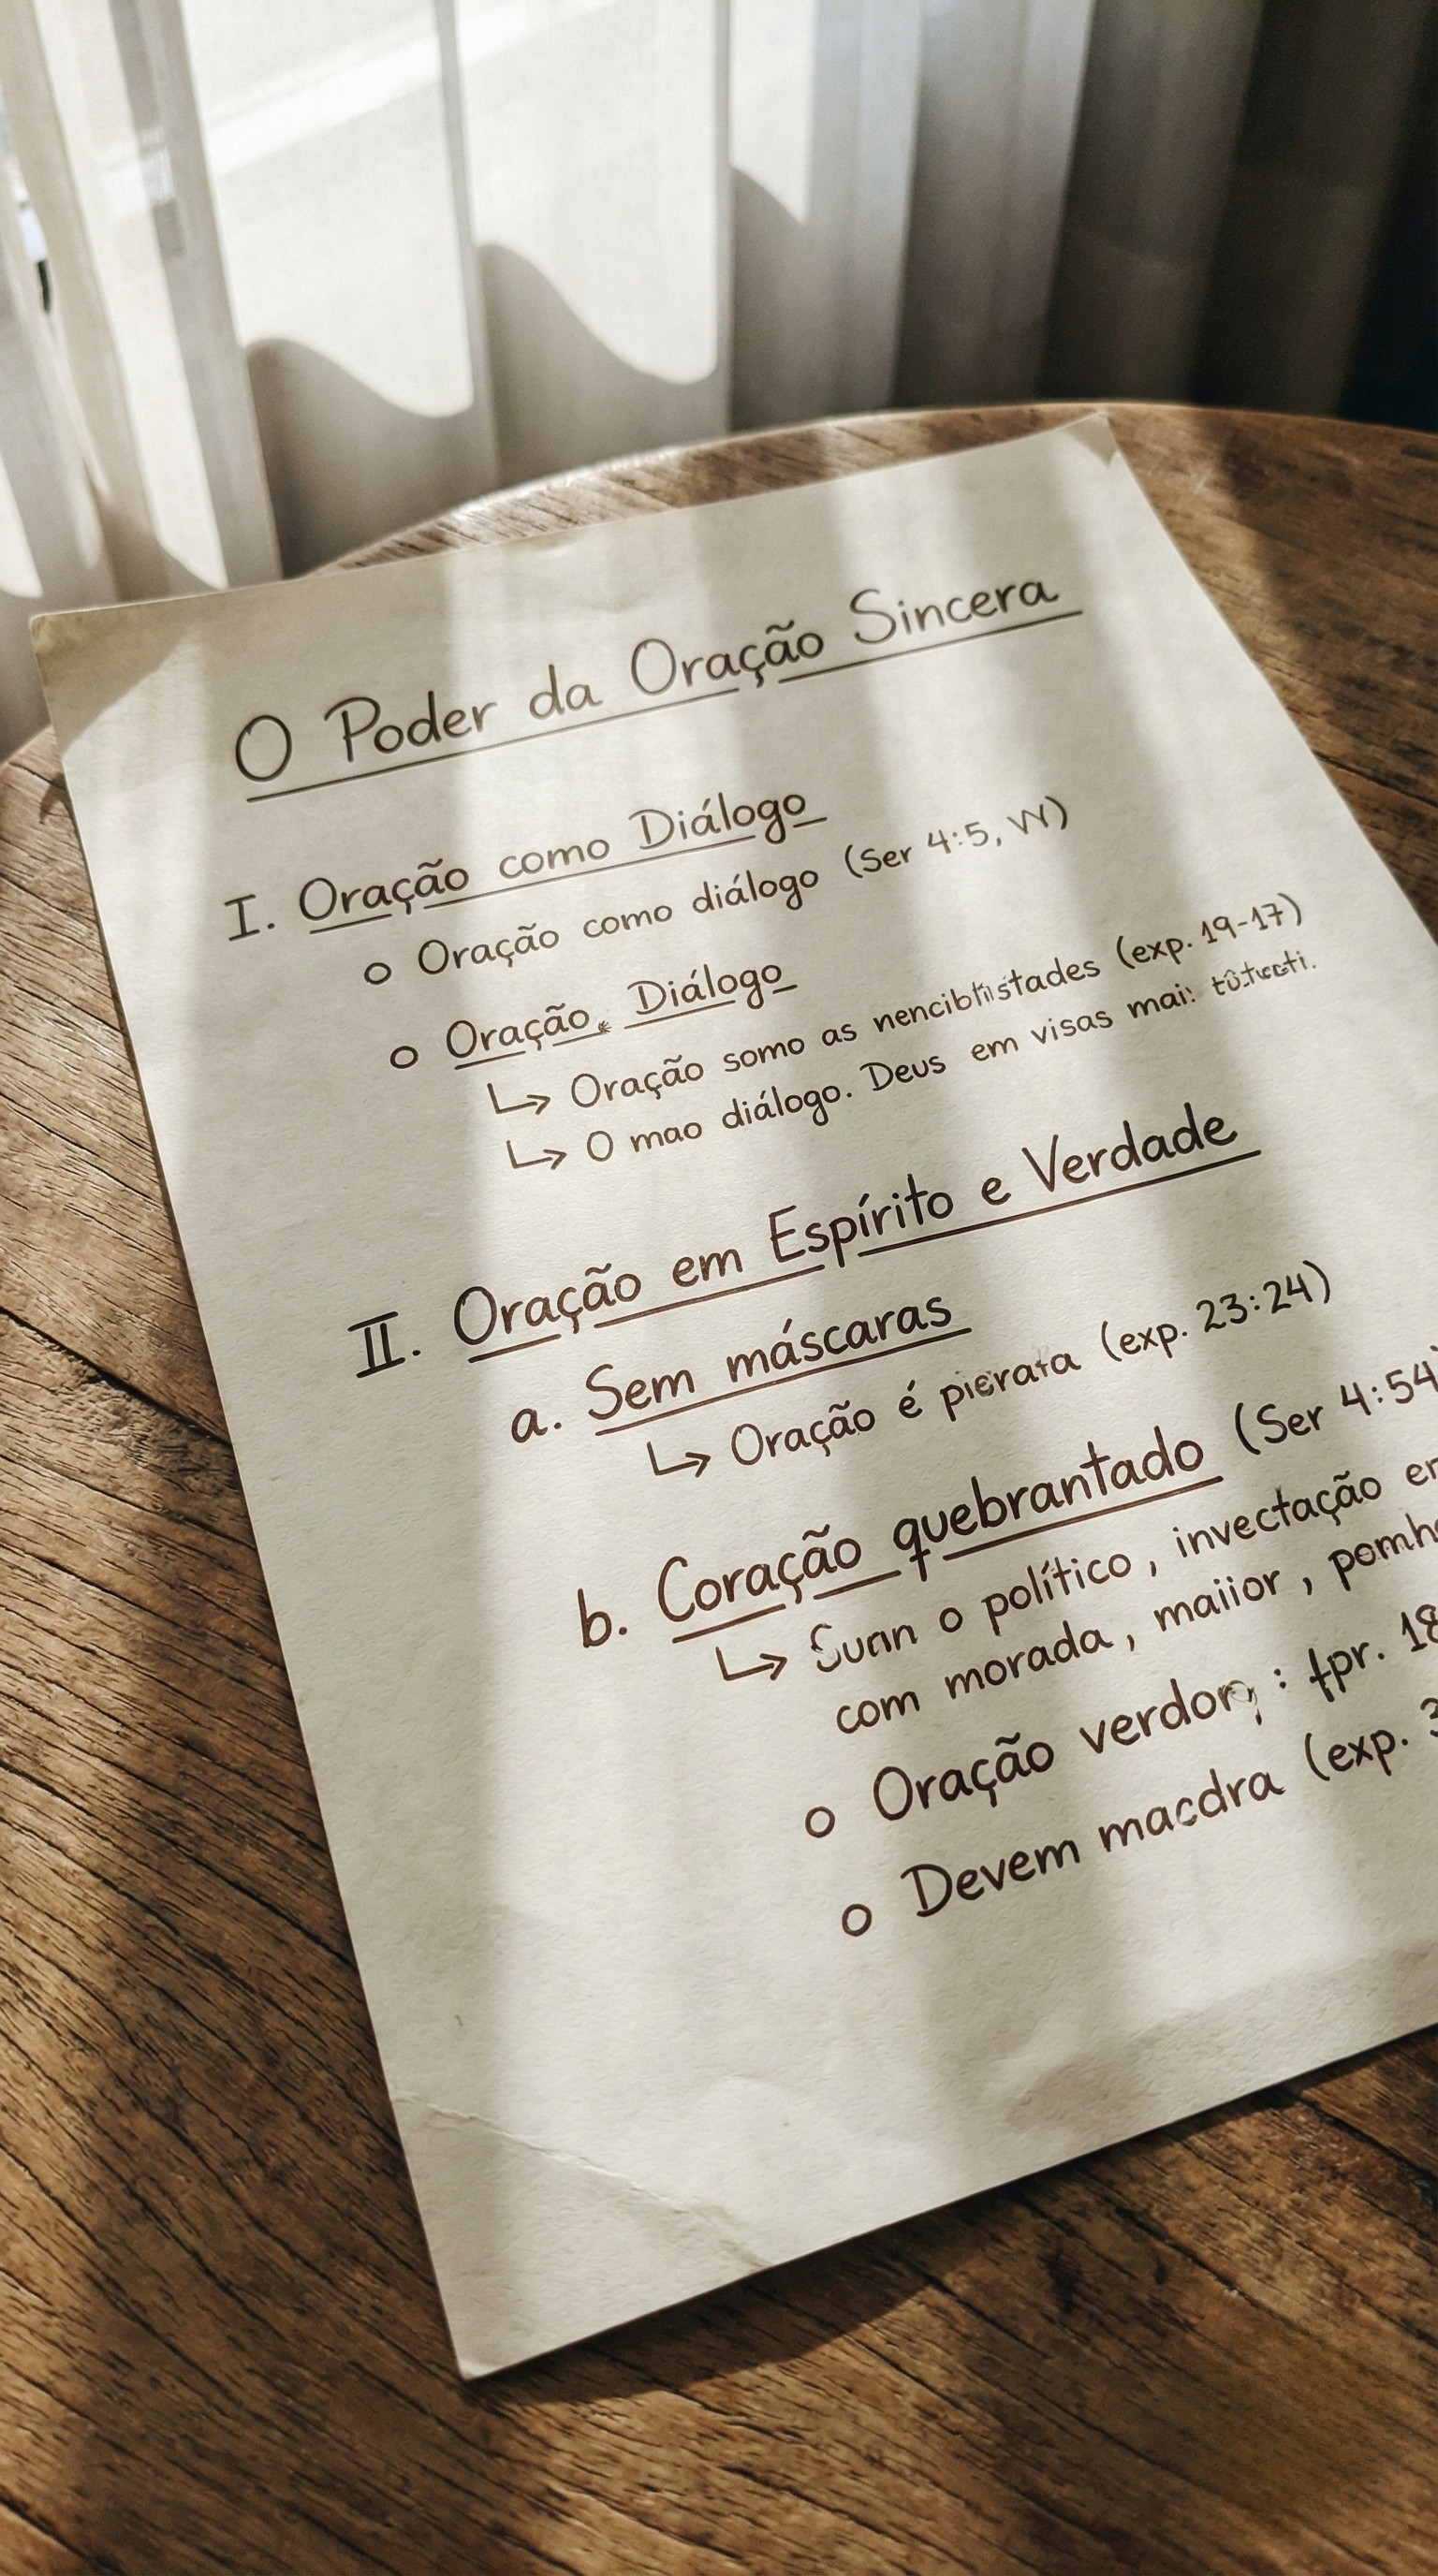 O Poder da Oração Sincera
I. Oração como Diálogo
o Oração como diálogo (Ser 4:5, VV)
o Oração Diálogo
↳ Oração somo as (exp. 19-17)
↳ O mao diálogo. Deus em visas mai:
II. Oração em Espírito e Verdade
a. Sem máscaras
↳ Oração é (exp. 23:24)
b. Coração quebrantado (Ser 4:54)
↳ o político, invectação
com morada, maiior,
o Oração
o Devem macdra (exp.